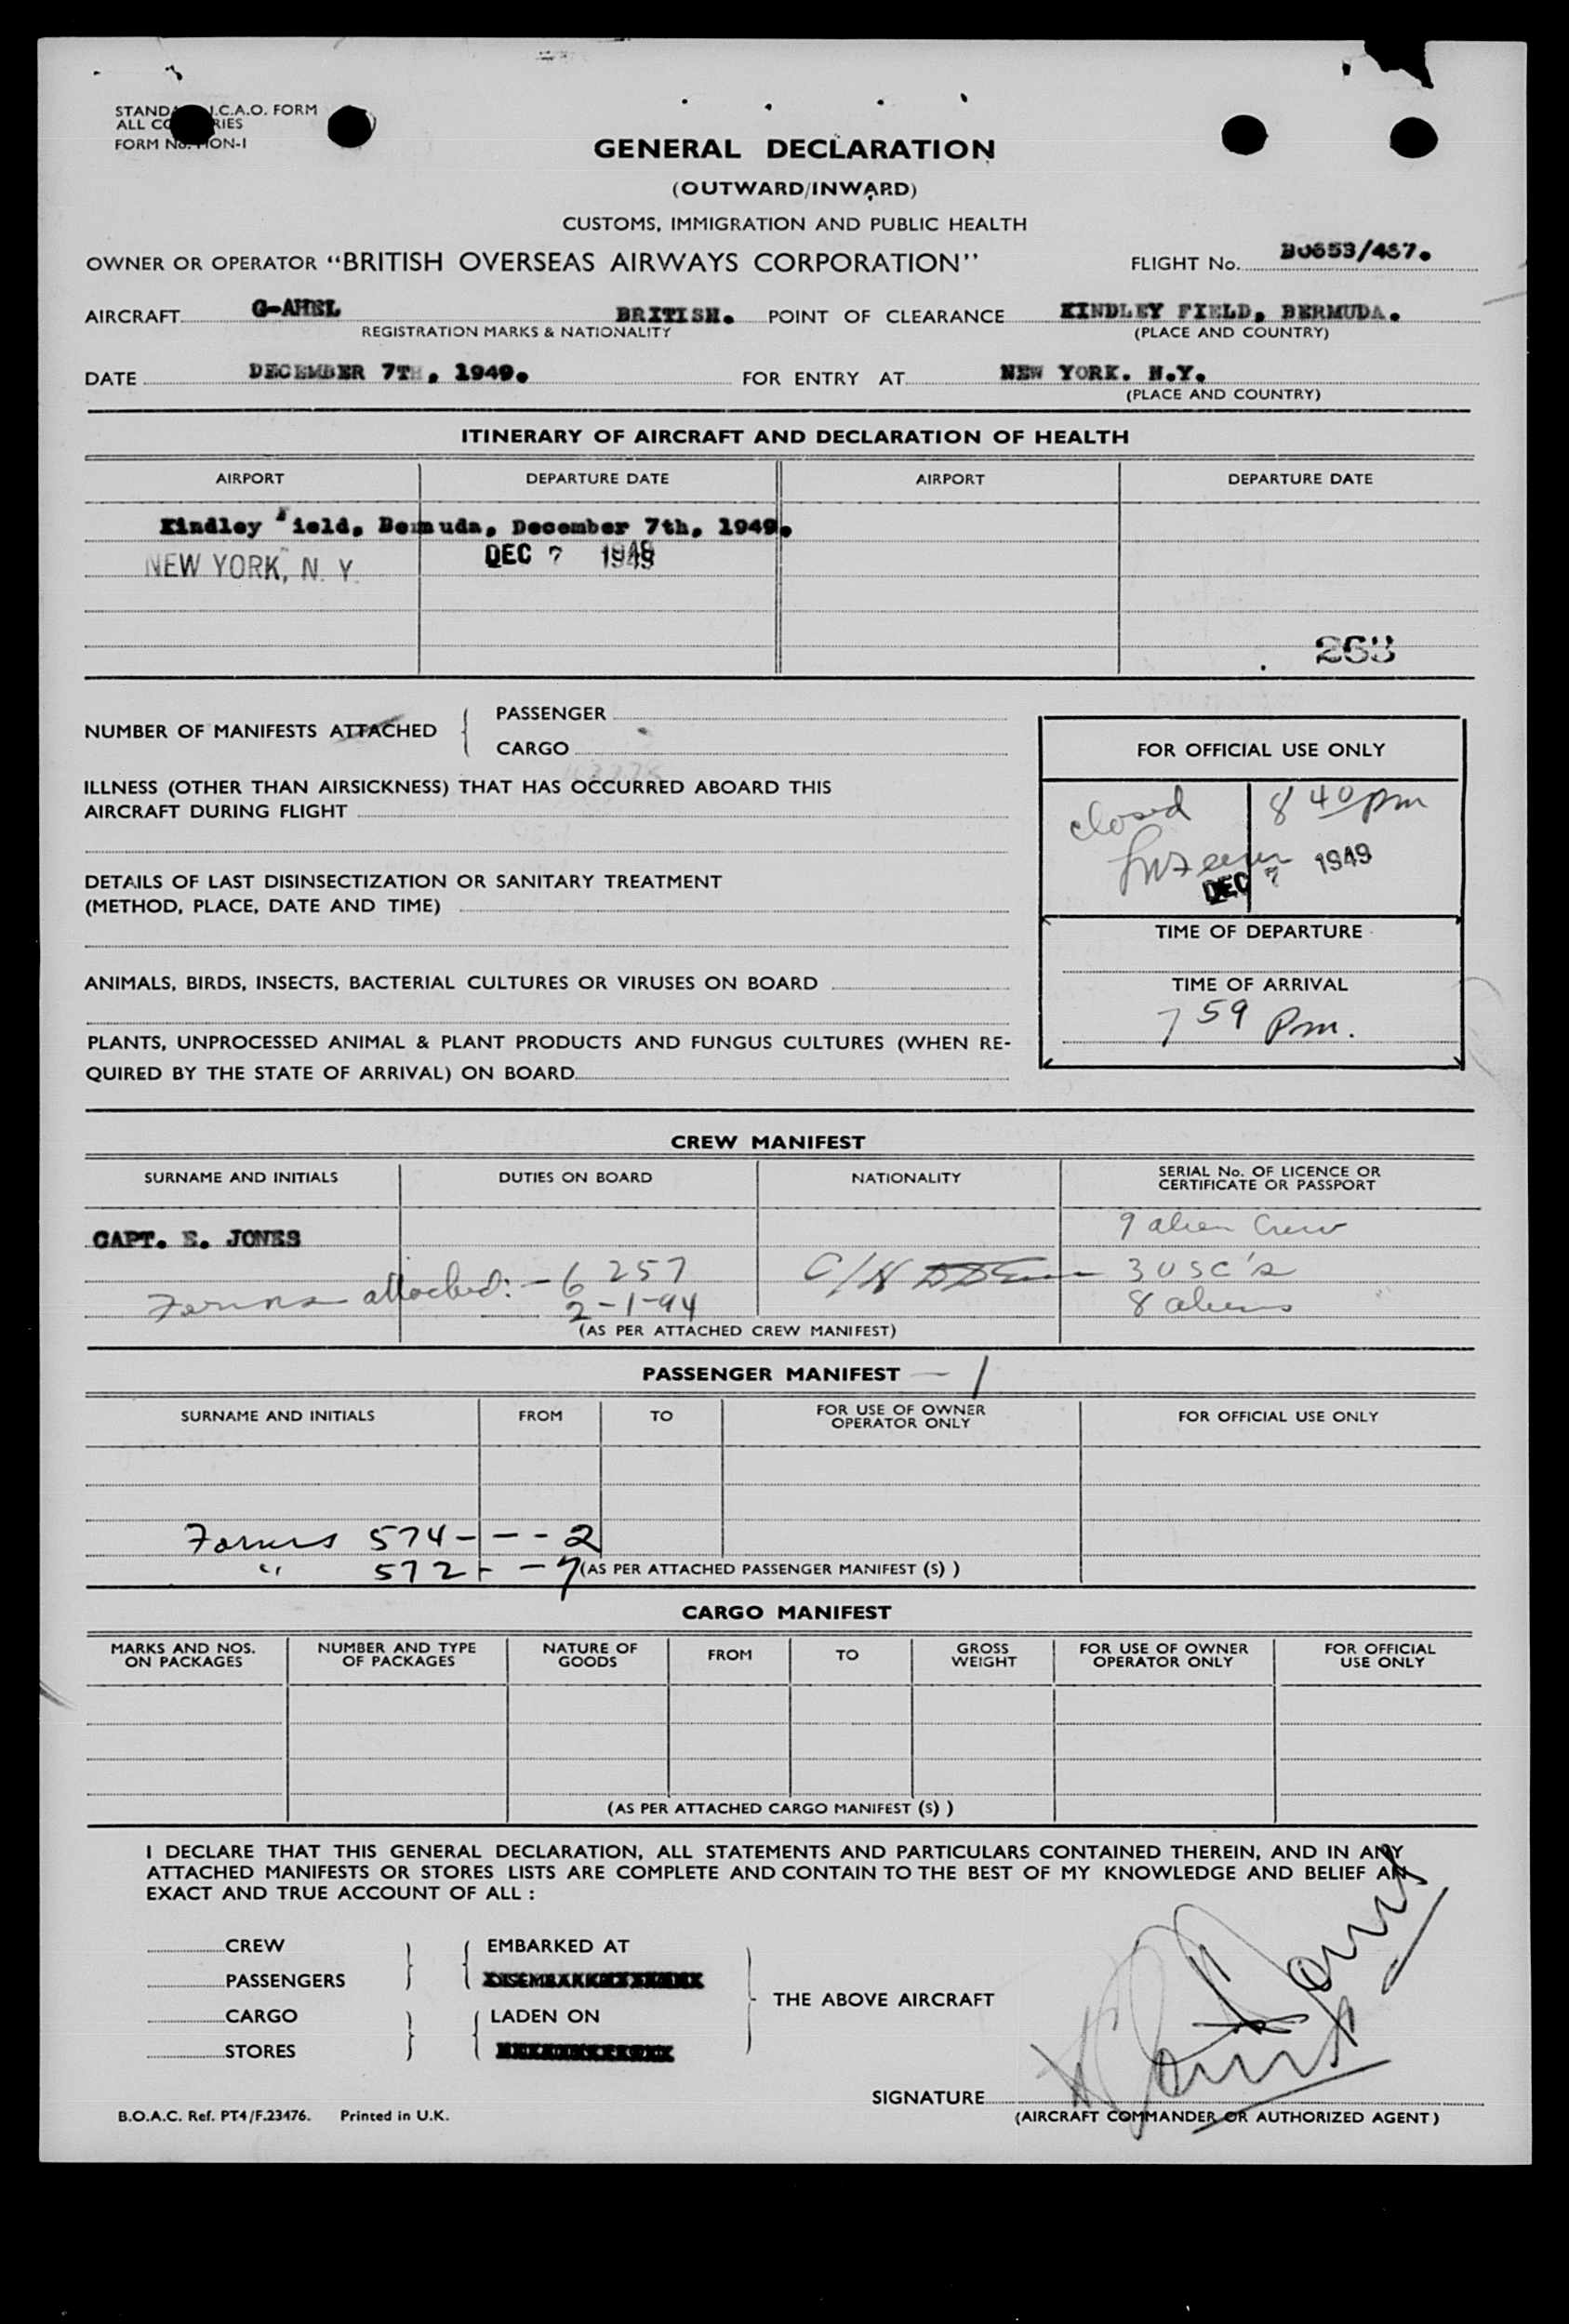 STANDARD I.C.A.O. FORM
ALL COUNTRIES
FORM No. MON-1
GENERAL DECLARATION
(OUTWARD/INWARD)
CUSTOMS, IMMIGRATION AND PUBLIC HEALTH
OWNER OR OPERATOR "BRITISH OVERSEAS AIRWAYS CORPORATION" FLIGHT No. BO653/457.
AIRCRAFT G-AHEL BRITISH. POINT OF CLEARANCE KINDLEY FIELD, BERMUDA.
REGISTRATION MARKS & NATIONALITY (PLACE AND COUNTRY)
DATE DECEMBER 7TH, 1949. FOR ENTRY AT NEW YORK. N.Y.
(PLACE AND COUNTRY)
ITINERARY OF AIRCRAFT AND DECLARATION OF HEALTH
AIRPORT DEPARTURE DATE AIRPORT DEPARTURE DATE
Kindley Field, Bermuda, December 7th, 1949.
NEW YORK, N. Y. DEC 7 1949
263
NUMBER OF MANIFESTS ATTACHED { PASSENGER
CARGO
FOR OFFICIAL USE ONLY
ILLNESS (OTHER THAN AIRSICKNESS) THAT HAS OCCURRED ABOARD THIS
AIRCRAFT DURING FLIGHT
closed 8 40 pm
DEC 7 1949
DETAILS OF LAST DISINSECTIZATION OR SANITARY TREATMENT
(METHOD, PLACE, DATE AND TIME)
TIME OF DEPARTURE
ANIMALS, BIRDS, INSECTS, BACTERIAL CULTURES OR VIRUSES ON BOARD
TIME OF ARRIVAL
7 59 Pm.
PLANTS, UNPROCESSED ANIMAL & PLANT PRODUCTS AND FUNGUS CULTURES (WHEN RE-
QUIRED BY THE STATE OF ARRIVAL) ON BOARD
CREW MANIFEST
SURNAME AND INITIALS DUTIES ON BOARD NATIONALITY SERIAL No. OF LICENCE OR
CERTIFICATE OR PASSPORT
9 alien Crew
CAPT. E. JONES
Forms attached: - 6 257 C/N 3 USC's
2-1-94 8 aliens
(AS PER ATTACHED CREW MANIFEST)
PASSENGER MANIFEST — 1
SURNAME AND INITIALS FROM TO FOR USE OF OWNER
OPERATOR ONLY FOR OFFICIAL USE ONLY
Forms 574 - - - 2
" 572 - - 7 (AS PER ATTACHED PASSENGER MANIFEST (S) )
CARGO MANIFEST
MARKS AND NOS.
ON PACKAGES NUMBER AND TYPE
OF PACKAGES NATURE OF
GOODS FROM TO GROSS
WEIGHT FOR USE OF OWNER
OPERATOR ONLY FOR OFFICIAL
USE ONLY
(AS PER ATTACHED CARGO MANIFEST (S) )
I DECLARE THAT THIS GENERAL DECLARATION, ALL STATEMENTS AND PARTICULARS CONTAINED THEREIN, AND IN ANY
ATTACHED MANIFESTS OR STORES LISTS ARE COMPLETE AND CONTAIN TO THE BEST OF MY KNOWLEDGE AND BELIEF AN
EXACT AND TRUE ACCOUNT OF ALL :
CREW EMBARKED AT
PASSENGERS
THE ABOVE AIRCRAFT
CARGO LADEN ON
STORES
SIGNATURE
B.O.A.C. Ref. PT4/F.23476. Printed in U.K. (AIRCRAFT COMMANDER OR AUTHORIZED AGENT)